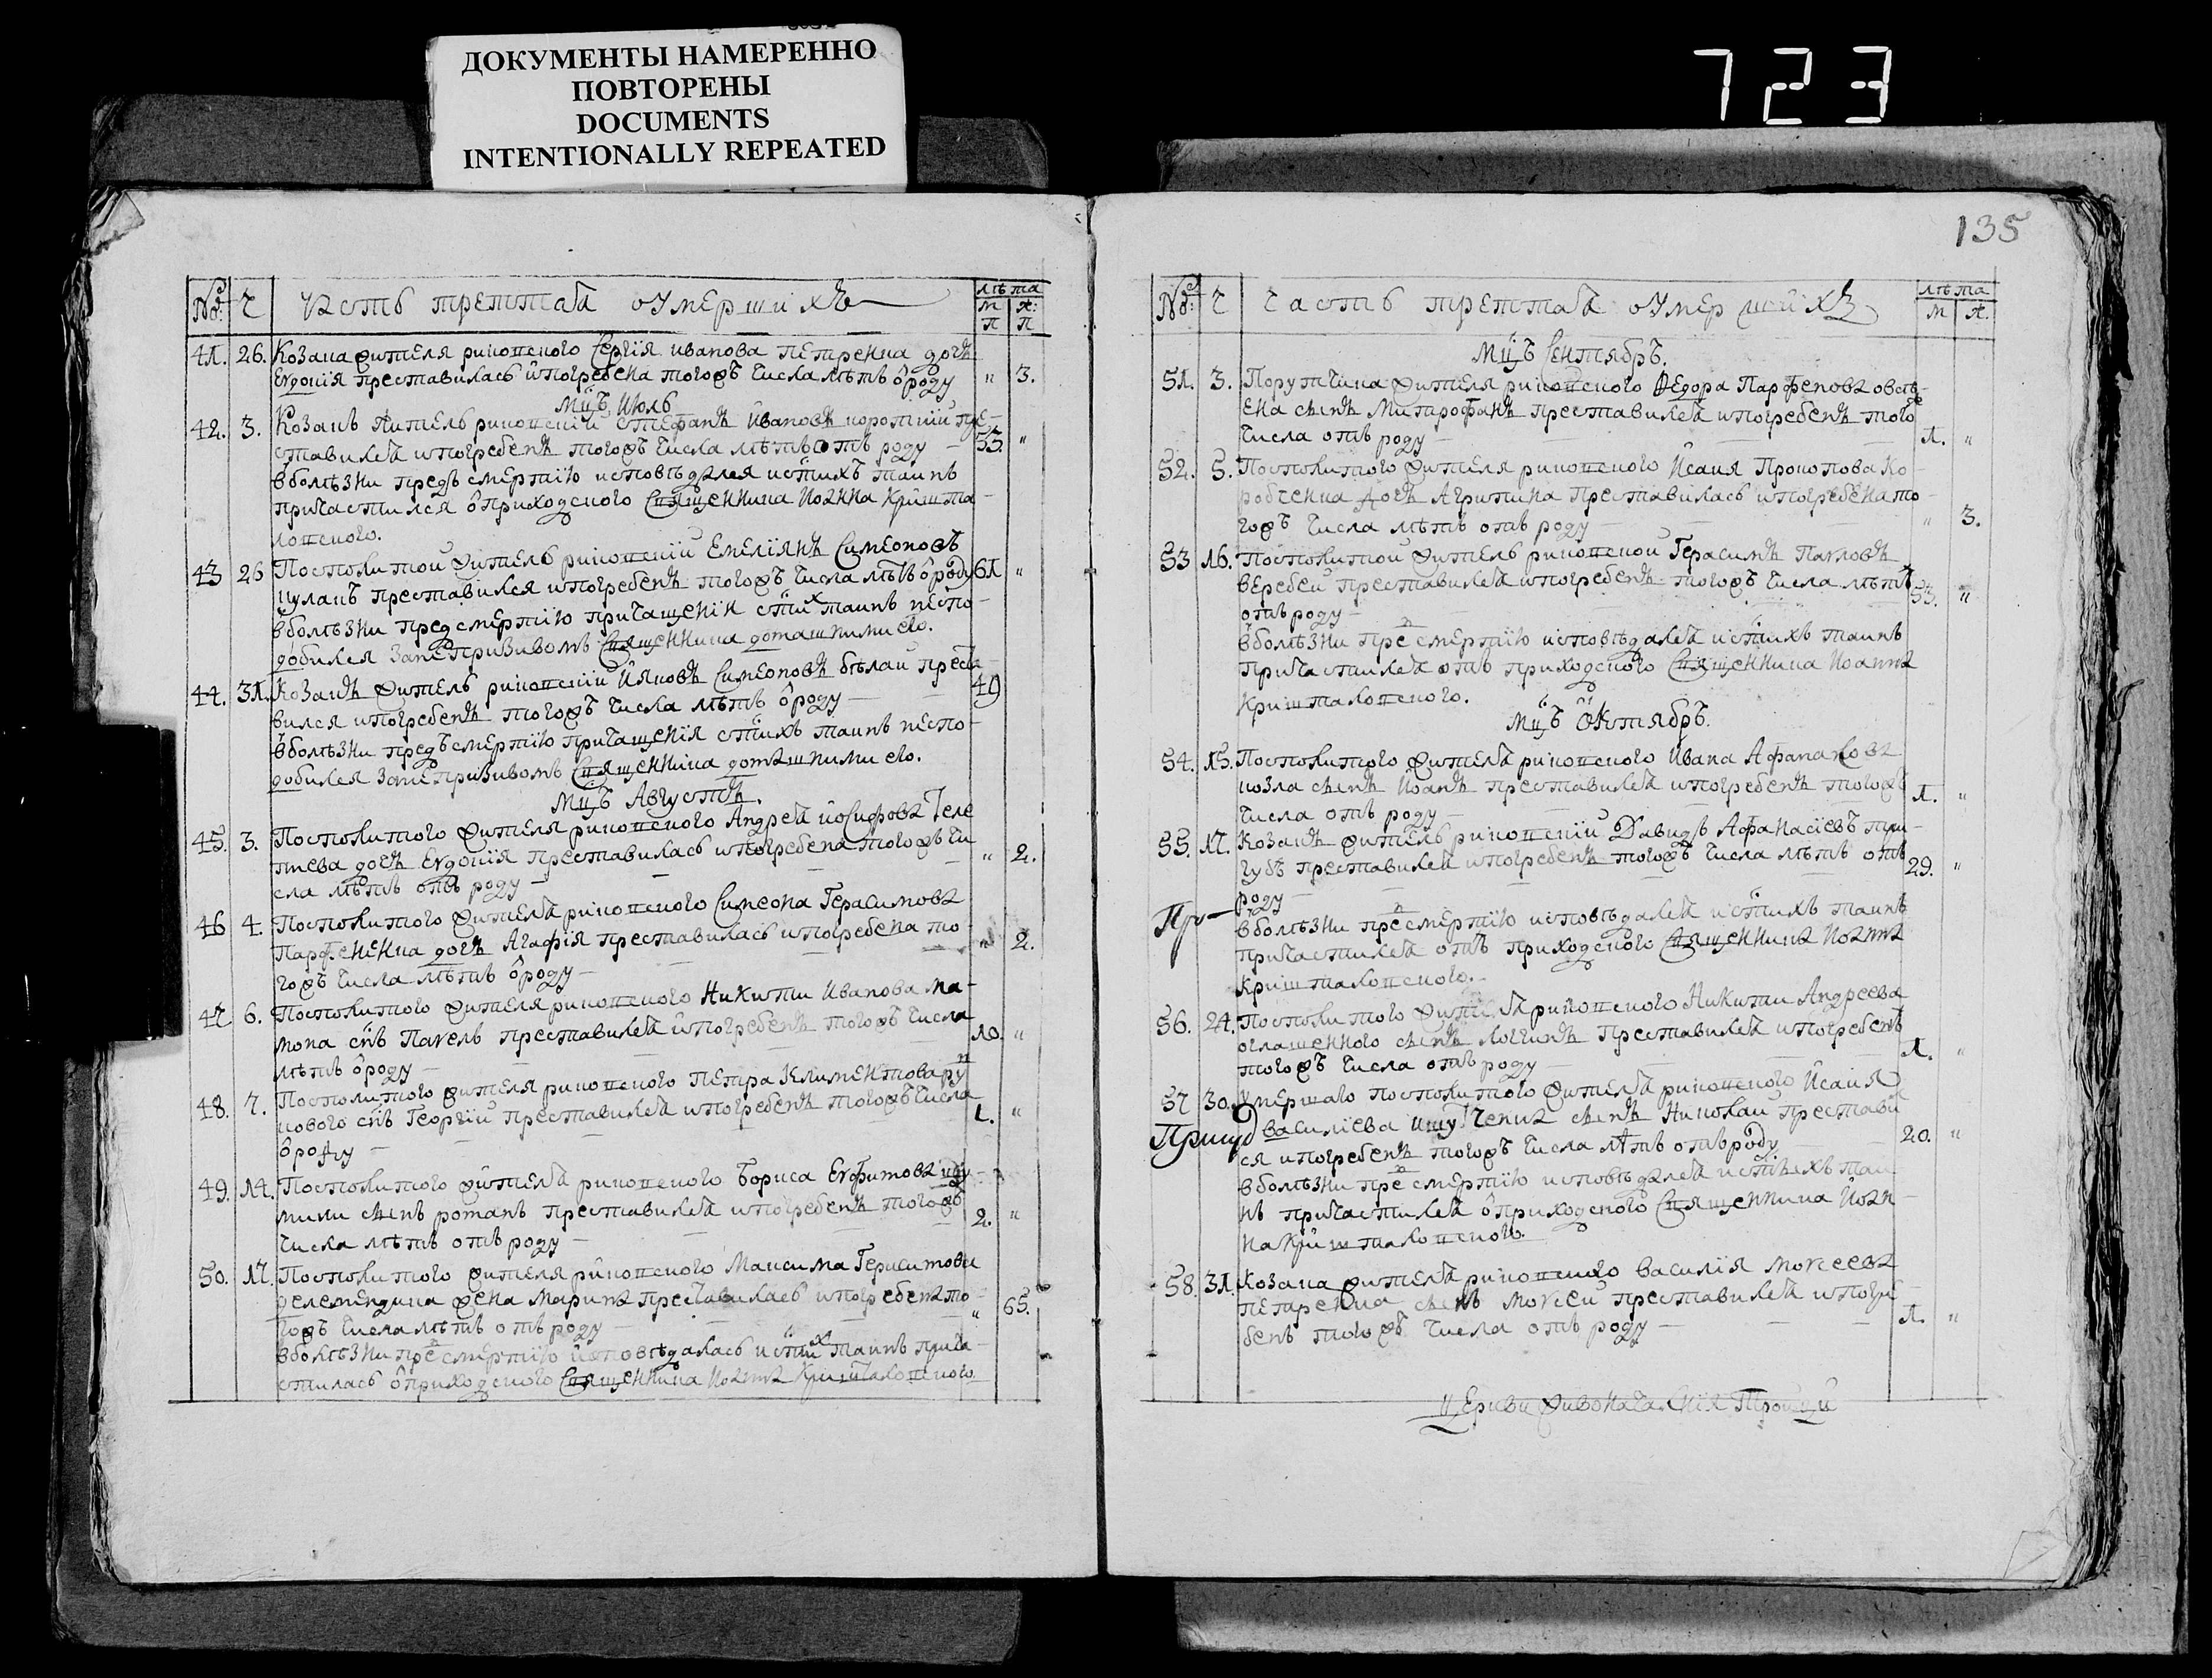 ДОКУМЕНТЫ НАМЕРЕННО
ПОВТОРЕНЫ
DOCUMENTS
INTENTIONALLY REPEATED
723
№ Ч Часть третята оумершихъ лѣта
м п ж: п
41. 26. Козака жителя рикопского Сергія иванова петренка дочь
Евдокія преставилась ипогребена тогожъ числа лѣтъ ѿроду „ 3.
Мцъ, Июль
42. 3. Козакъ житель рикопскій стефанъ ивановъ коропній пре-
ставился ипогребенъ тогожъ числа лѣтъ отъ роду 55. „
вболѣзни предъ смертію исповѣдался истихъ таинъ
причастился ѿприходского Сщященника Иоанна Кришта-
лопского.
43 26 Посполитой житель рикопскій Емеліянъ Симеоновъ
кулакъ преставился ипогребенъ тогожъ числа лѣтъ ѿроду 61 „
вболѣзни пред смертію причащенія стих таинъ неспо-
добился занепризивомъ Сщященника домашними его.
44. 31. Козакъ житель рикопскій Ияковъ Симеоновъ бѣлай преста-
вился ипогребенъ тогожъ числа лѣтъ ѿроду 49
вболѣзни предъ смертію причащенія стихъ таинъ неспо-
добился занепризивомъ Сщященника домашними его.
Мцъ Августъ.
45. 3. Посполитого жителя рикопского Андрея иосифова Теле
тнева дочь Евдокія преставилась ипогребена тогожъ чи
сла лѣтъ отъ роду „ 2.
46 4. Посполитого жителя рикопского Симеона Герасимова
Парфененка дочь Агафія преставилась ипогребена то-
гожъ числа лѣтъ ѿроду „ 2.
47 6. Посполитого жителя рикопского Никити Иванова ма-
мона снъ Павелъ преставился ипогребенъ тогожъ числа
лѣтъ ѿроду 10. „
48. 7. Посполитого жителя рикопского петра Климентова
кового снъ Георгій преставился ипогребенъ тогожъ числа
ѿроду 1. „
49. 14. Посполитого жителя рикопского бориса Евфимова
сынъ романъ преставился ипогребенъ тогожъ
числа лѣтъ отъ роду 2. „
50. 17. Посполитого жителя рикопского Максима Герасимова
делемендика жена Марина преставилась ипогребена то-
гожъ числа лѣтъ отъ роду „ 65.
вболѣзни пред смертію исповѣдалась истих таинъ прича-
стилась ѿприходского Сщященника Иоанна Кришталопского
135
№ Ч Часть третята оумершихъ лѣта
м ж.
Мцъ Сентябръ.
51. 3. Порутчика жителя рикопского Федора Парфенова овсѣ-
ена сынъ Митрофанъ преставился ипогребенъ того
числа отъ роду 1. „
52. 5. Посполитого жителя рикопского Исаия Прокопова Ко-
робченка дочь Агрипина преставилась ипогребена то-
гожъ числа лѣтъ отъ роду „ 3.
53 16. Посполитой житель рикопской Герасимъ Павловъ
веребей преставился ипогребенъ тогожъ числа лѣтъ
отъ роду 53. „
вболѣзни пред смертію исповѣдался истихъ таинъ
причастился отъ приходского Сщященника Иоанна
Кришталопского.
Мцъ Октябръ.
54. 15. Посполитого жителя рикопского Ивана Афанасова
козла сынъ Иоанъ преставился ипогребенъ тогожъ
числа отъ роду 1. „
55. 17. Козакъ житель рикопскій Давидъ Афанасіевъ при-
губъ преставился ипогребенъ тогожъ числа лѣтъ отъ
роду 29. „
При
вболѣзни пред смертію исповѣдался истихъ таинъ
причастился отъ приходского Сщященника Иоанна
Кришталопского.
56. 24. Посполитого жителя рикопского Никити Андреева
оглашенного сынъ Логгинъ преставился ипогребенъ
тогожъ числа отъ роду 1. „
57 30. Умершаго посполитого жителя рикопского Исаия
василіева сынъ Николай престави
ся ипогребенъ тогожъ числа лѣтъ отъ роду 20. „
вболѣзни пред смертію исповѣдался истихъ таи
нъ причастился ѿприходского Сщященника Иоан-
на Кришталопского.
58. 31. Козака жителя рикопского василія мовсеева
петренка сынъ мовсей преставился ипогре
бенъ тогожъ числа отъ роду 1. „
церкви живоначалнія Тройци